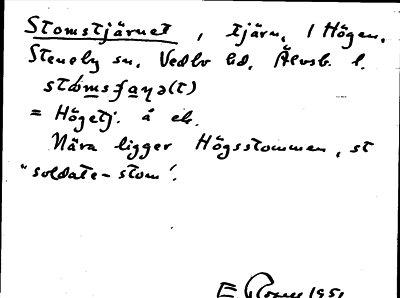 Stomstjärnet, tjärn, i Högen,
Steneby sn, Vedbo hd, Älvsb. l.
= Högetj. å ek.
Nära ligger Högsstommen, st
"soldate-stom".
1951